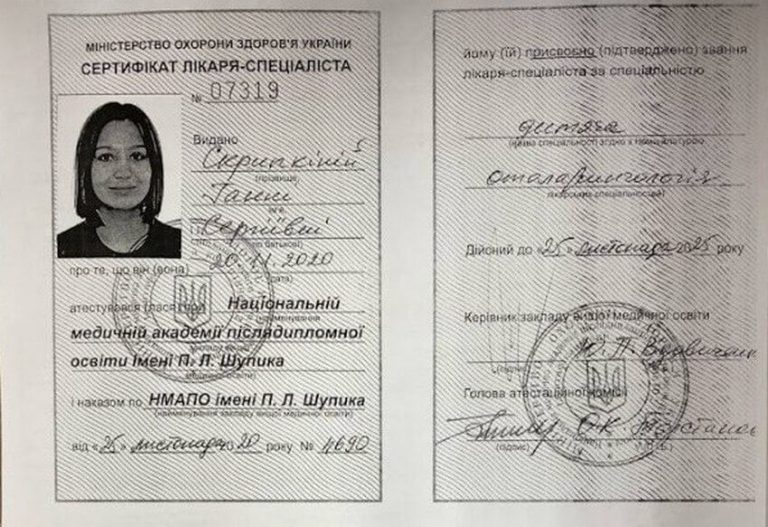 МІНІСТЕРСТВО ОХОРОНИ ЗДОРОВ'Я УКРАЇНИ
СЕРТИФІКАТ ЛІКАРЯ-СПЕЦІАЛІСТА
№ 07319
Видано
Скрипкіній
(прізвище)
Ганні
Сергіївні
(по батькові)
про те, що він (вона) 20.11.2020
(дата)
атестувався (лася) при Національній
(найменування
медичній академії післядипломної
освіти імені П. Л. Шупика
медичної освіти)
і наказом по НМАПО імені П. Л. Шупика
(найменування закладу вищої медичної освіти)
від «25» листопада 2020 року № 4690
йому (їй) присвоєно (підтверджено) звання
лікаря-спеціаліста за спеціальністю
дитяча
(назва спеціальності згідно з номенклатурою
отоларингологія
лікарських спеціальностей)
Дійсний до «25» листопада 2025 року
Керівник закладу вищої медичної освіти
(підпис)
Голова атестаційної комісії
О.К.
(підпис)